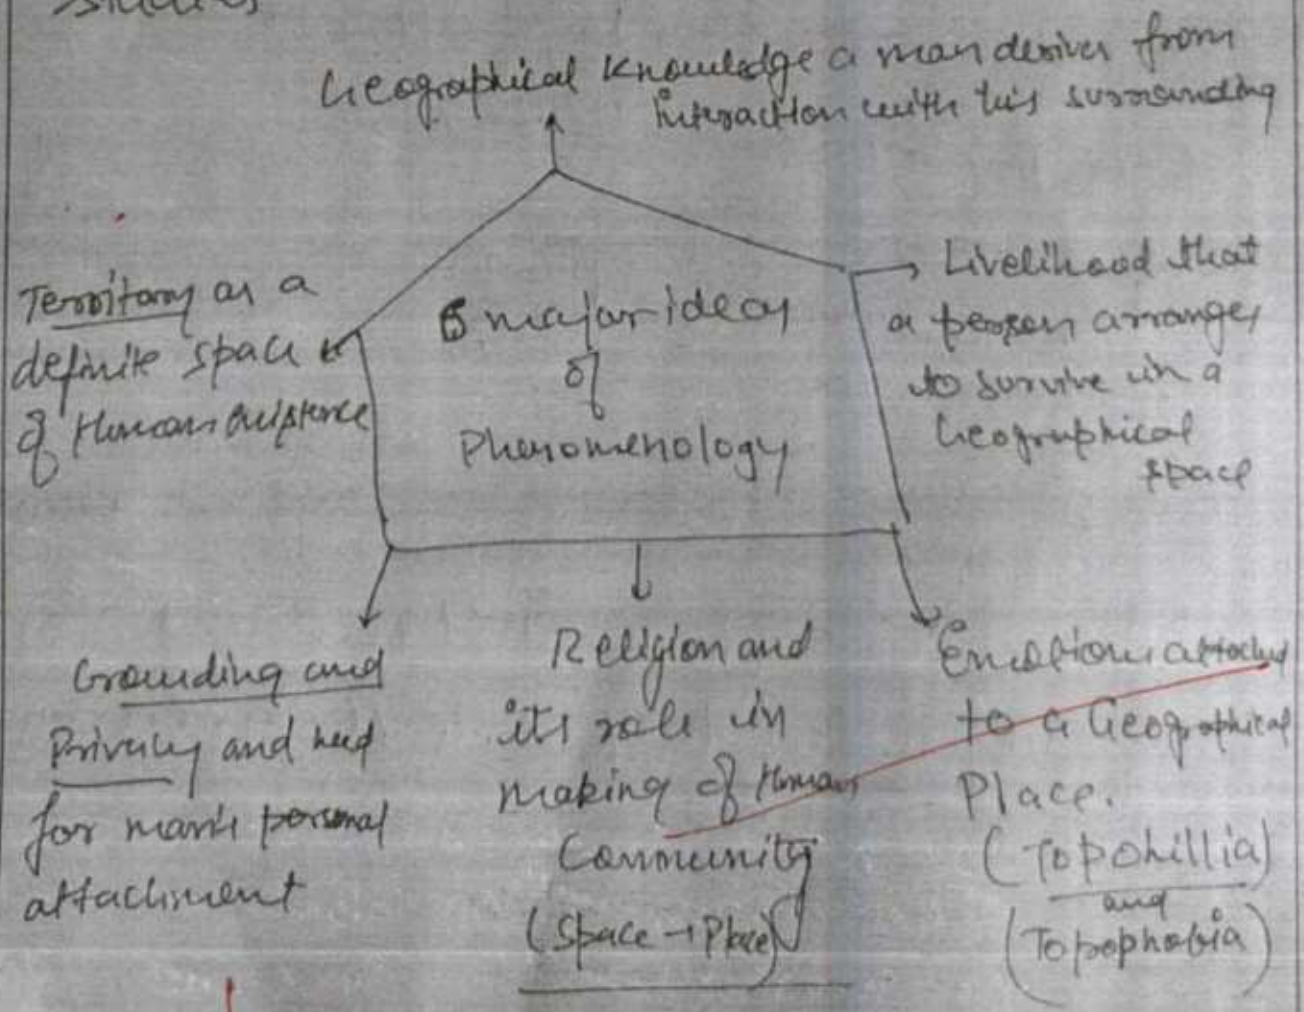 Studies
Geographical Knowledge a man derives from
interaction with his surrounding
Territory as a
definite space
of Human existence
6 major ideas
of
Phenomenology
Livelihood that
a person arranges
to survive in a
Geographical
space
Grounding and
Privacy and need
for man's personal
attachment
Religion and
its role in
making of Human
Community
(Space → Place)
Emotions attached
to a Geographical
Place.
(Topohillia)
and
(Topophobia)